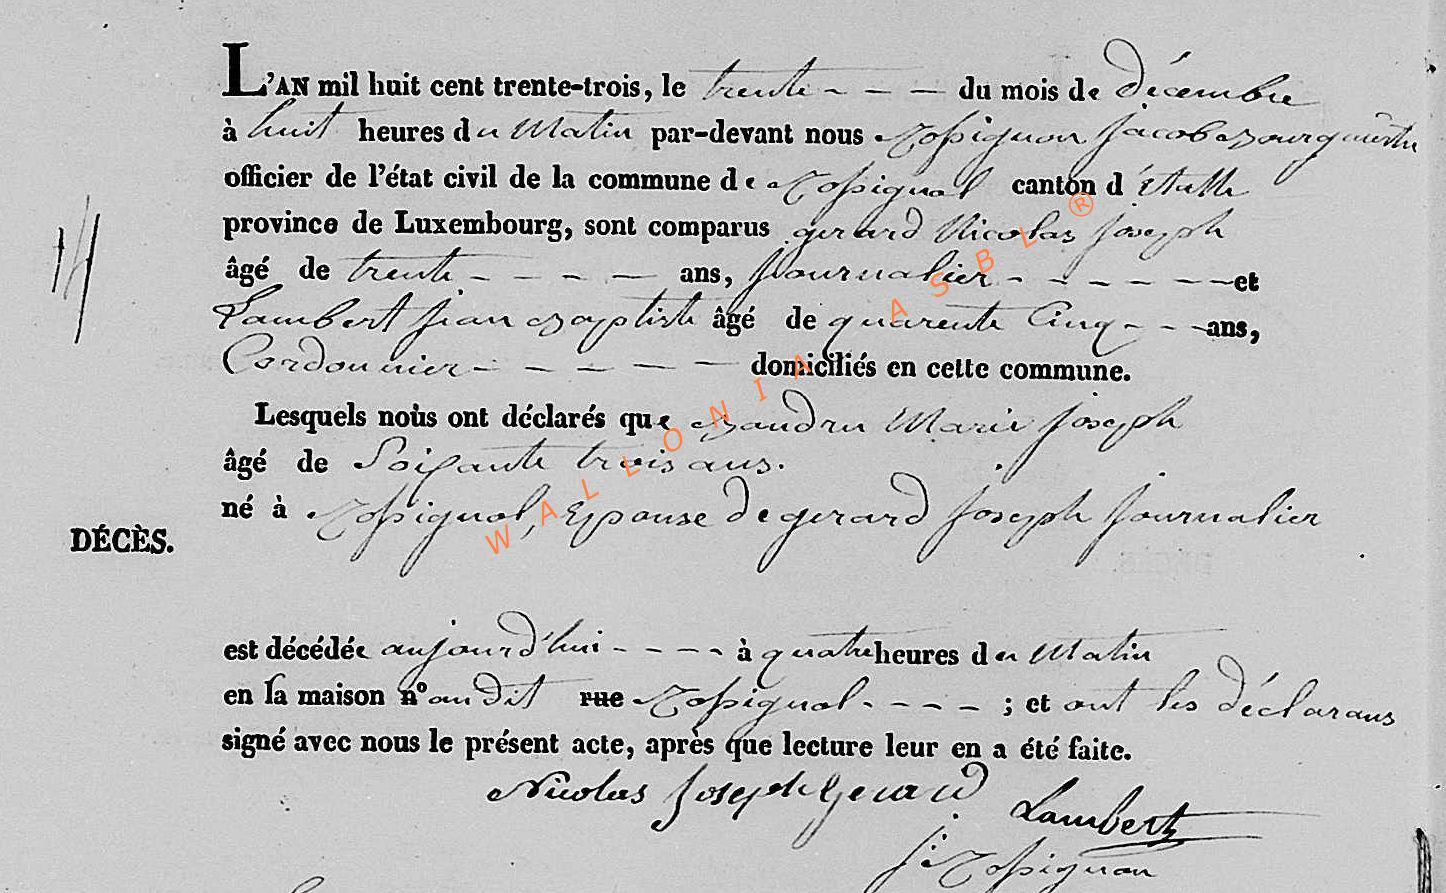 L'AN mil huit cent trente-trois, le trente - - - du mois de décembre
à huit heures du Matin par-devant nous Rossignon Jacob Bourguemêstre
officier de l'état civil de la commune de Rossignol canton d'étalle
province de Luxembourg, sont comparus gerard Nicolas Joseph
14
âgé de trente - - - - - ans, Journalier - - - - - - et
Lambert jean Baptiste âgé de quarente Cinq - - - ans,
Cordonnier - - - - - - domiciliés en cette commune.
Lesquels nous ont déclarés que Baudru Marie Joseph
âgé de Soixante trois ans.
né à Rossignol, Epouse de gerard Joseph Journalier
DÉCÈS.
est décédée aujourd'hui - - - - à quatre heures du Matin
en la maison n° audit rue Rossignol - - - - ; et ont les déclarans
signé avec nous le présent acte, après que lecture leur en a été faite.
Nicolas Joseph Gerard Lambert
j: Rossignon
WALLONIA ASBL ®